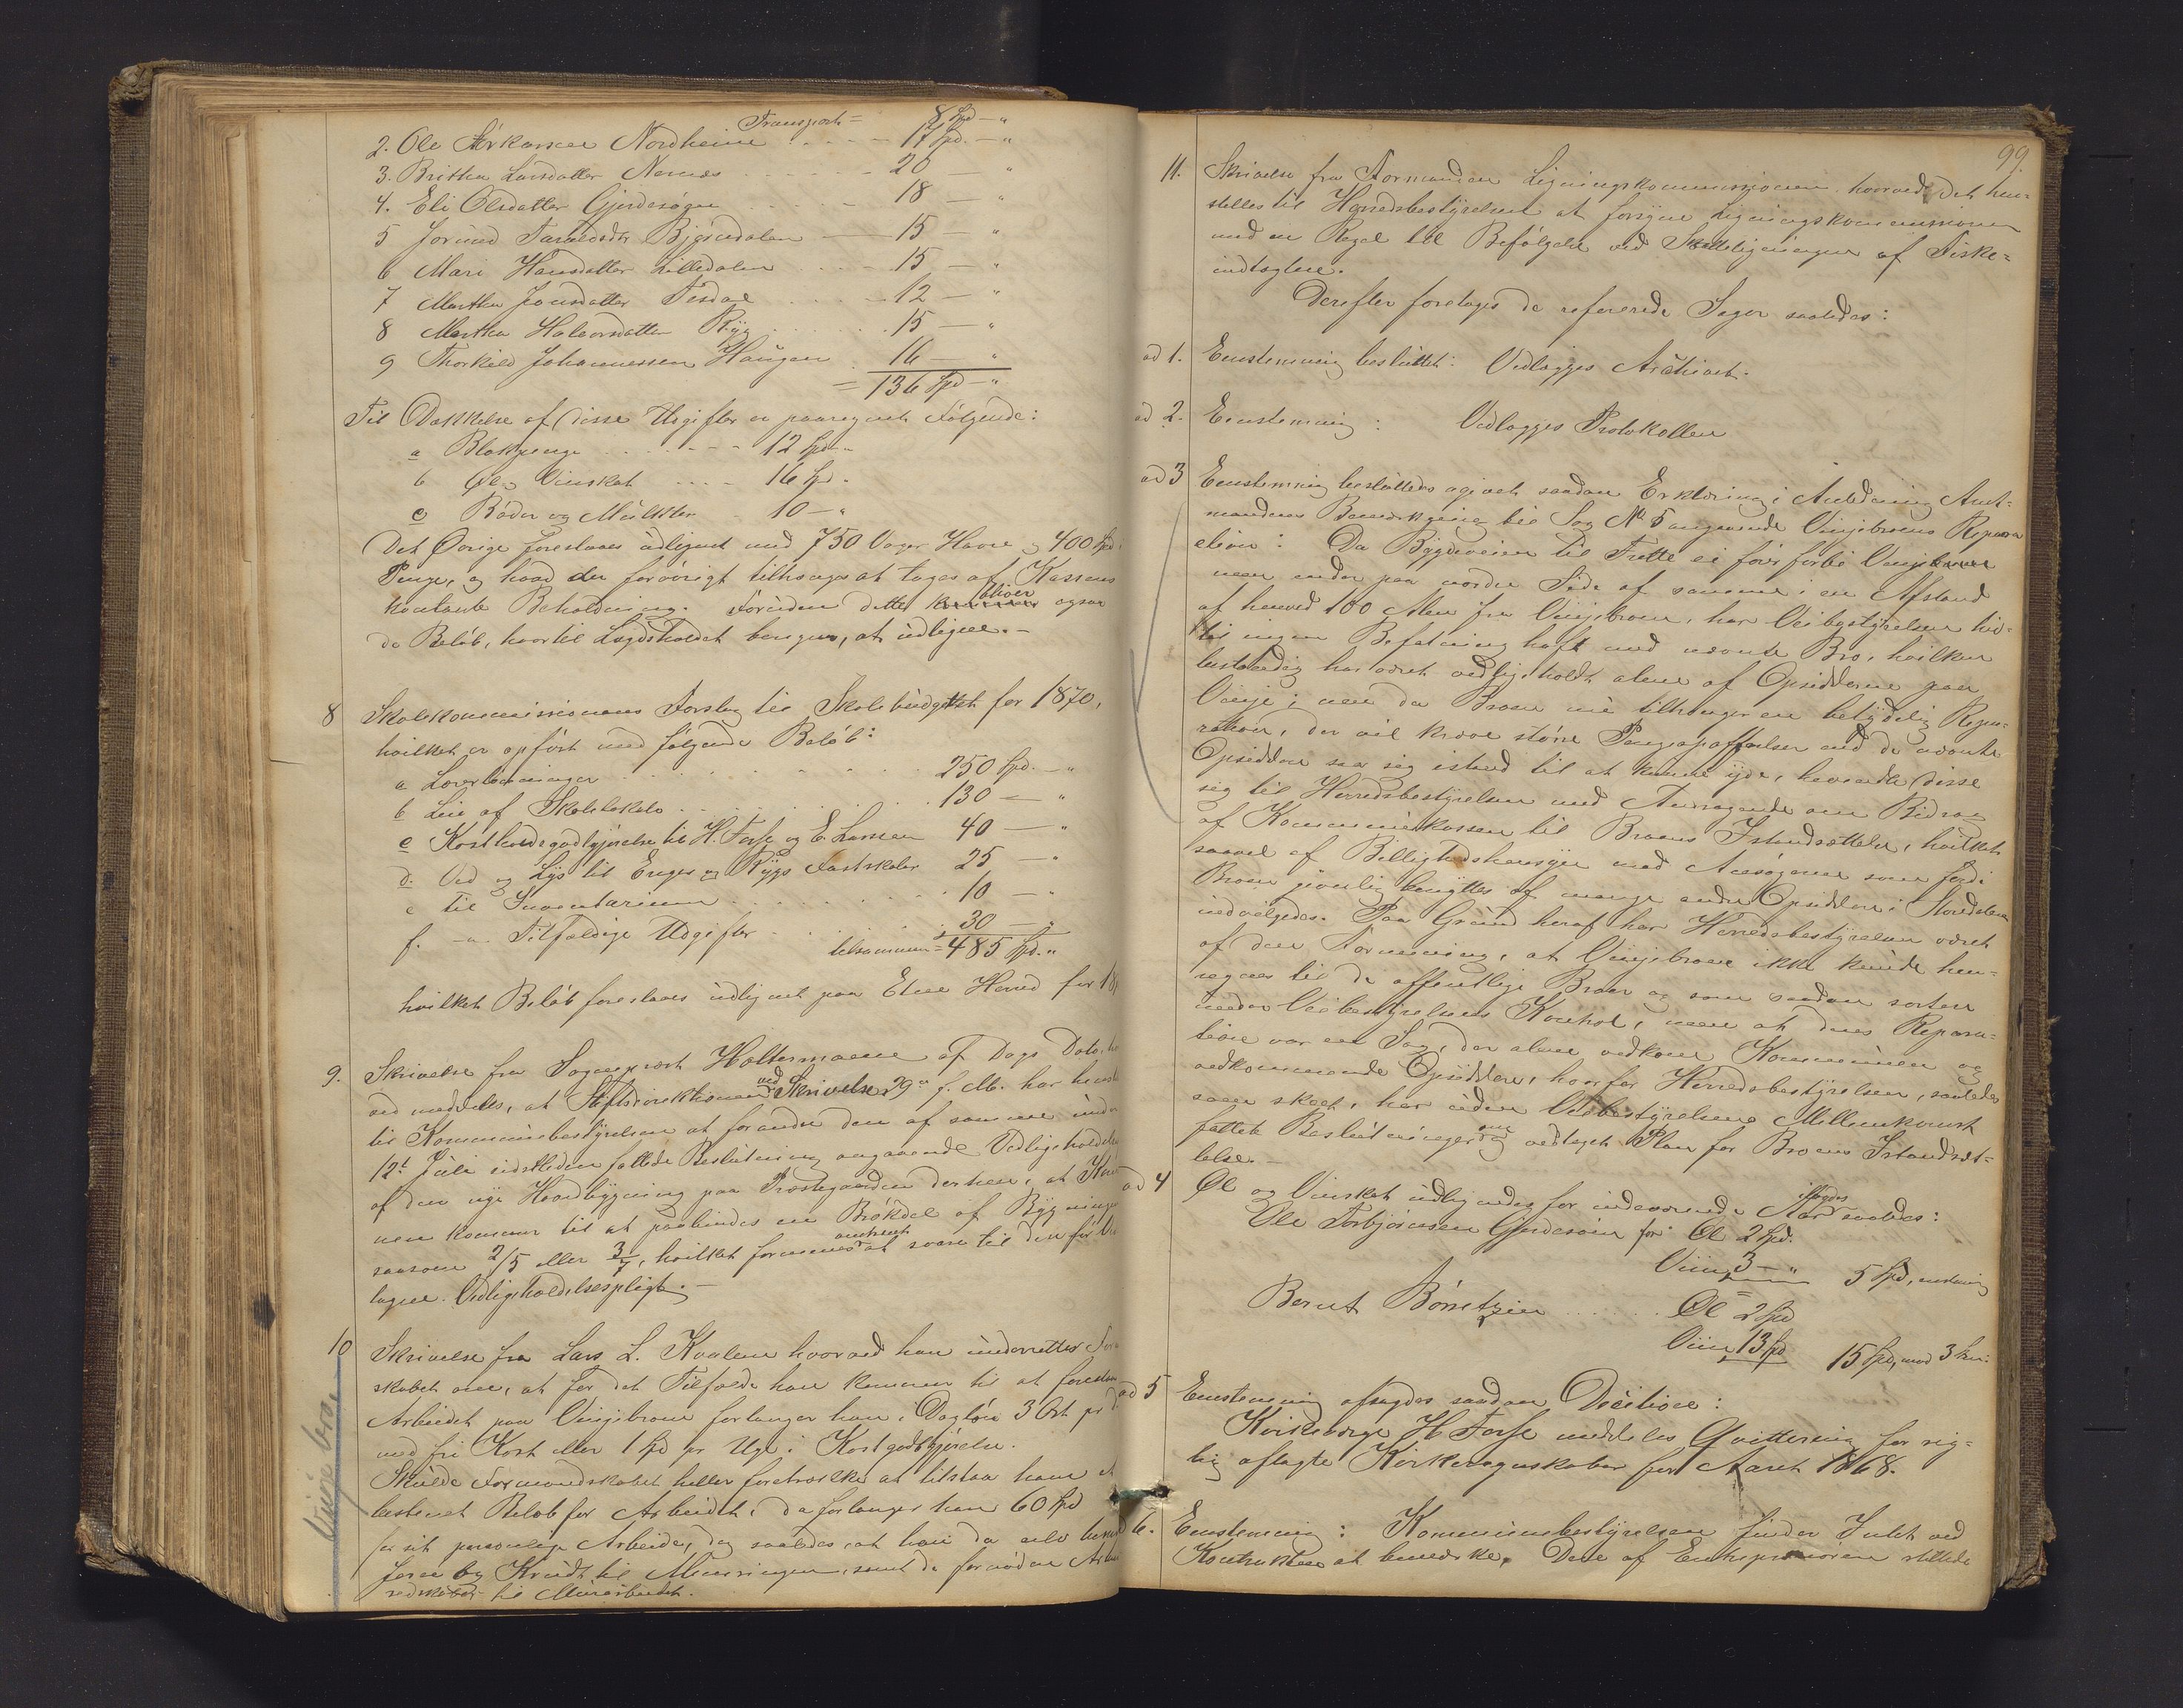 Transport = 8 Spd — "
2. Ole Størkersen Nordheim . . . — 17 Spd. — "
3. Britha Larsdatter Nernæs . . . — 20 "
4. Eli Olsdatter Gjerdesøgn . . — 18 — "
5 Jorund Taraldsdtr Bjøsndalen — 15 — "
6 Mari Hansdatter Lilledalen . . . — 15 — "
7 Martha Jonsdatter Tesdal . . . — 12 — "
8 Martha Halvorsdatter Ryg . . . . . 15 — "
9 Thorkild Johannessen Haugen . 16 — "
= 136 Spd — "
Til Dækkelse af disse Udgifter er paaregnet Følgende:
a Blokpenge . . . . . - - - 12 Spd — "
b Øl og Viinskat . . . - - 16 Spd.
c Bøder og Mulkter . 10 — "
Det Øvrige foreslaaes udlignet med 750 Voger Havre og 400 Spd.
Penge, og hvad der forøvrigt tilhænges at tages af Kassens
kontante Beholdning. Foruden dette bliver ogsaa
de Beløb, hvortil Lægdsholdet beregnes, at udligne. —
8 Skolekommissionens Forslag til Skolebudgettet for 1870,
hvilket er opført med følgende Beløb:
a Lærerlønninger . . . . . . 250 Spd. — "
b Leie af Skolelokale . . . . . . 130 — "
c Kostholdsgodtgjørelse til H. Forse og E. Larsen 40 — "
d. Ved og Lys til Enges og Rygs Fastskoler 25 — "
e til Inventarium . . . . . . . . 10 — "
f. — " — Tilfældige Udgifter . . . . . 30 — "
tilsammen = 485 Spd. "
hvilket Beløb foreslaaes udlignet paa Etne Herred for 18
9. Skrivelse fra Sogneprest Holtermann af Dags Dato,
ved meddeles, at Stiftsdirektionen ved Skrivelse 29de f. M. har henst
til Kommunebestyrelsen at forandre den af samme under
12te Juli sidstleden fattede Beslutning angaaende Vedligeholdel
af den nye Hovedbygning paa Præstegaarden derhen, at Kom
nen kommer til at paabindes en Brøkdel af Bygningen
saasom 2/5 eller 3/7, hvilket formenes omtrent at svare til den før
tagne Vedligeholdelsespligt. —
10 Skrivelse fra Lars L. Kvalen hvorved han underretter For
skabet om, at for det Tilfælde han kommer til at forestaa
Arbeidet paa Vinjebroen forlanger han i Dagløn 3 Ort pr D
med fri Kost eller 1 Spd pr Uge i Kostgodtgjørelse.
Skulde Formandskabet heller foretrække at tilstaa ham et
bestemt Beløb for Arbeidet, da forlanger han 60 Spd
for sit personlige Arbeide, dog saaledes at han da selv
Jern og Krudt til Mineringen, samt de fornødne Arbei
redskaber til Murarbeidet.
Vinje bro
99.
11. Skrivelse fra Formanden i Ligningskommissionen hvorved det hen-
stilles til Herredsbestyrelsen at forsyne Ligningskommissionen
med en Regel til Befølgelse ved Skatteligningen af Fiske-
indtægtene.
Derefter foretoges de refererede Sager saaledes:
ad 1. Eenstemmig besluttet: Vedlægges Archivet.
ad 2. Eenstemmig: Vedlægges Protokollen
ad 3 Eenstemmig besluttedes afgivet saadan Erklæring i Anledning Amt-
mandens Bemærkning til Sag No 5 angaaende Vinjebroens Repara-
tion: Da Bygdeveien til Frette ei fører forbi Vinjebroen
men under paa nordre Side af samme i en Afstand
af henved 100 Alen fra Vinjebroen, har Veibestyrelsen hid-
til ingen Befatning haft med nævnte Bro, hvilken
bestandig har været vedligeholdt alene af Opsidderne paa
Vinje; men da Broen nu tilhænger en betydelig Repa-
ration, der vil kræve større Pengeopoffrelser end de nævnte
Opsiddere saa sig istand til at kunne yde, henvendte disse
sig til Herredsbestyrelsen med Andragende om Bidrag
af Kommunekassen til Broens Istandsættelse, hvilket
saavel af Billighedshensyn mod Ansøgerne som fordi
Broen jevnlig benyttes af mange andre Opsiddere i Stordalen
indvilgedes. Paa Grund heraf har Herredsbestyrelsen været
af den Formening, at Vinjebroen ikke kunde hen-
regnes til de offentlige Broer og som saadan sortere
under Veibestyrelsens Kontrol, men at dens Repara-
tion var en Sag, der alene vedkom Kommunen og
vedkommende Opsiddere, hvorfor Herredsbestyrelsen, saaledes
som skeet, har uden Veibestyrelsens Mellemkomst
fattet Beslutninger om og vedtaget Plan for Broens Istandsæt-
telse. —
ad 4 Øl og Viinskat udlignedes for indeværende Aar saaledes:
Ole Torbjørnsen Gjerdesøen for Øl 2 Spd.
Viin 3 — " 5 Spd,
Bernt Børretzen . . . . . . Øl 2 Spd
Viin 13 Spd 15 Spd, mod 3
ad 5 Eenstemmig afsagdes saadan Decision:
Kirkeværge H Forse meddeles Qvittering for rig-
tig aflagte Kirkeregnskaber for Aaret 1868.
ad 6. Eenstemmig: Kommunebestyrelsen finder Intet ved
Kontrakten at bemærke. Den af Entreprenøren stillede